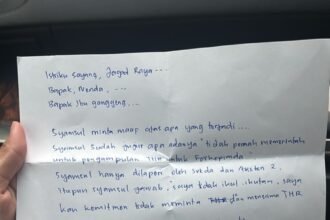 Istriku sayang, Jagad Raya....
Bapak, Nenda, ...
Bapak Ibu ganggeng...
Syamsul minta maaf atas apa yang terjadi...
Syamsul sudah jujur apa adanya "tidak pernah memerintah
untuk pengumpulan untuk Forkopimda
Syamsul hanya dilapori oleh Sekda dan Asisten 2,
itupun Syamsul jawab, saya tidak ikut ikutan, saya
kan komitmen tidak meminta dan menerima THR